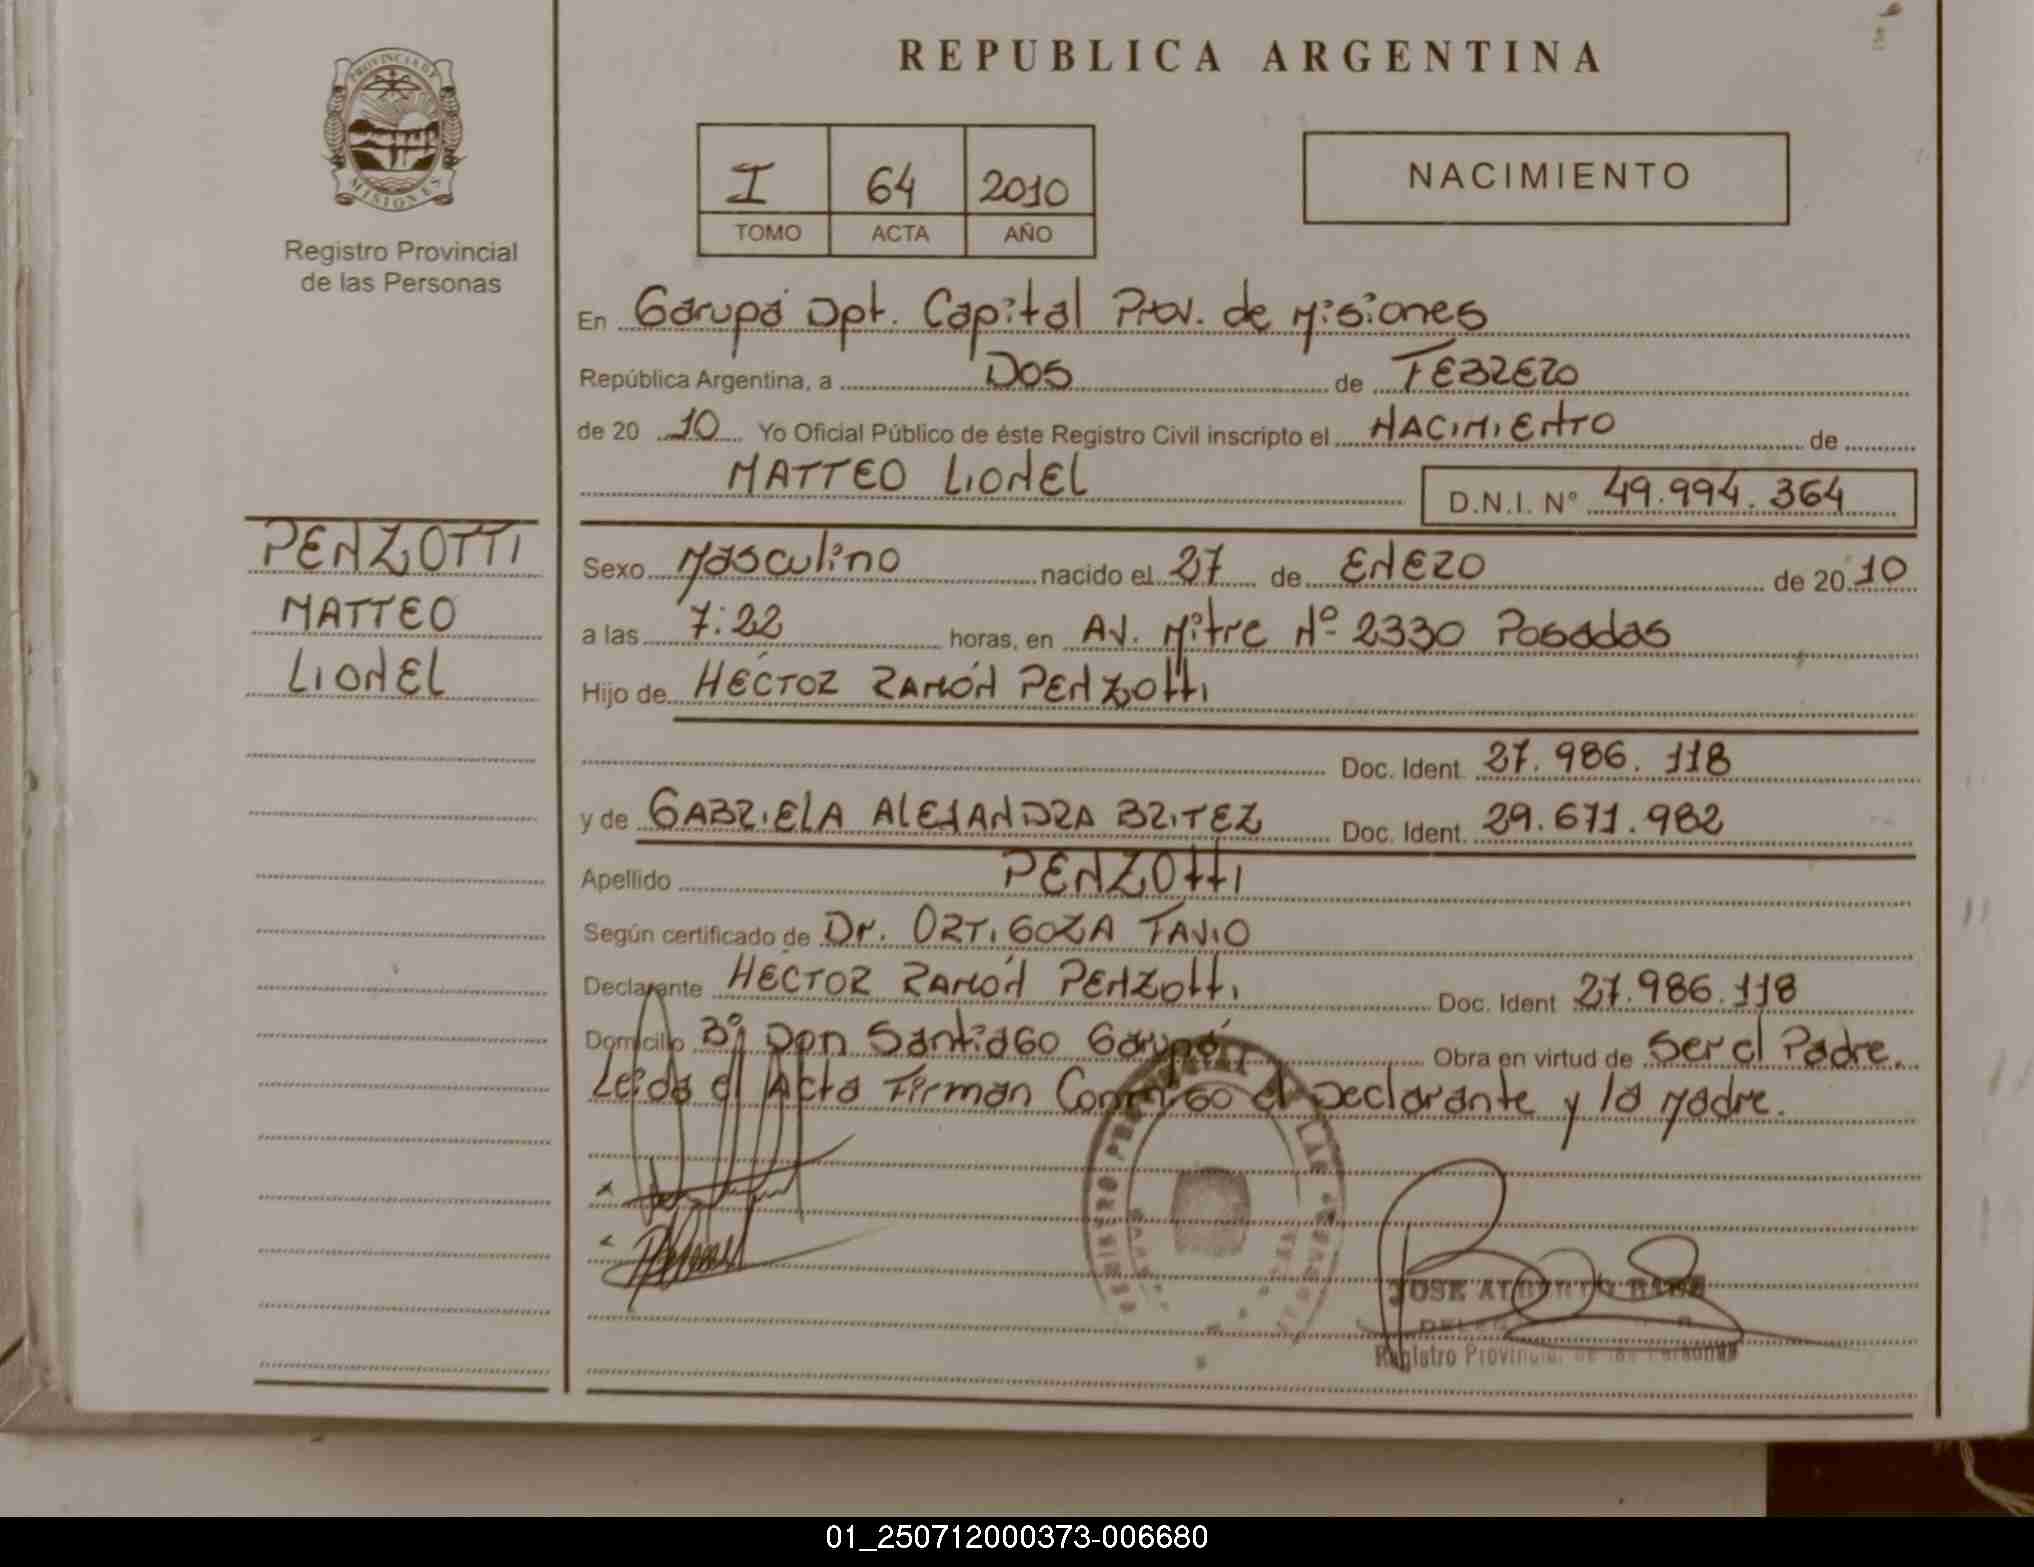 REPUBLICA ARGENTINA
PROVINCIA DE
MISIONES
Registro Provincial
de las Personas
I 64 2010
TOMO ACTA AÑO
NACIMIENTO
En Garupá Dpt. Capital Prov. de Misiones
República Argentina, a DOS de FEBRERO
de 20 10 Yo Oficial Público de éste Registro Civil inscripto el NACIMIENTO de
MATTEO LIONEL D.N.I. Nº 49.994.364
PENZOTTI
MATTEO
LIONEL
Sexo Masculino nacido el 27 de ENERO de 20 10
a las 7:22 horas, en Av. Mitre Nº 2330 Posadas
Hijo de HÉCTOR RAMÓN PENZOTTI
Doc. Ident. 27.986.118
y de GABRIELA ALEJANDRA BRITEZ Doc. Ident. 29.671.982
Apellido PENZOTTI
Según certificado de Dr. ORTIGOZA FAVIO
Declarante HÉCTOR RAMÓN PENZOTTI Doc. Ident 27.986.118
Domicilio Bº Don Santiago Garupá Obra en virtud de Ser el Padre.
Leida el Acta Firman Conmigo el Declarante y la Madre.
JOSE ALBERTO
Registro Provincial de las Personas
01_250712000373-006680